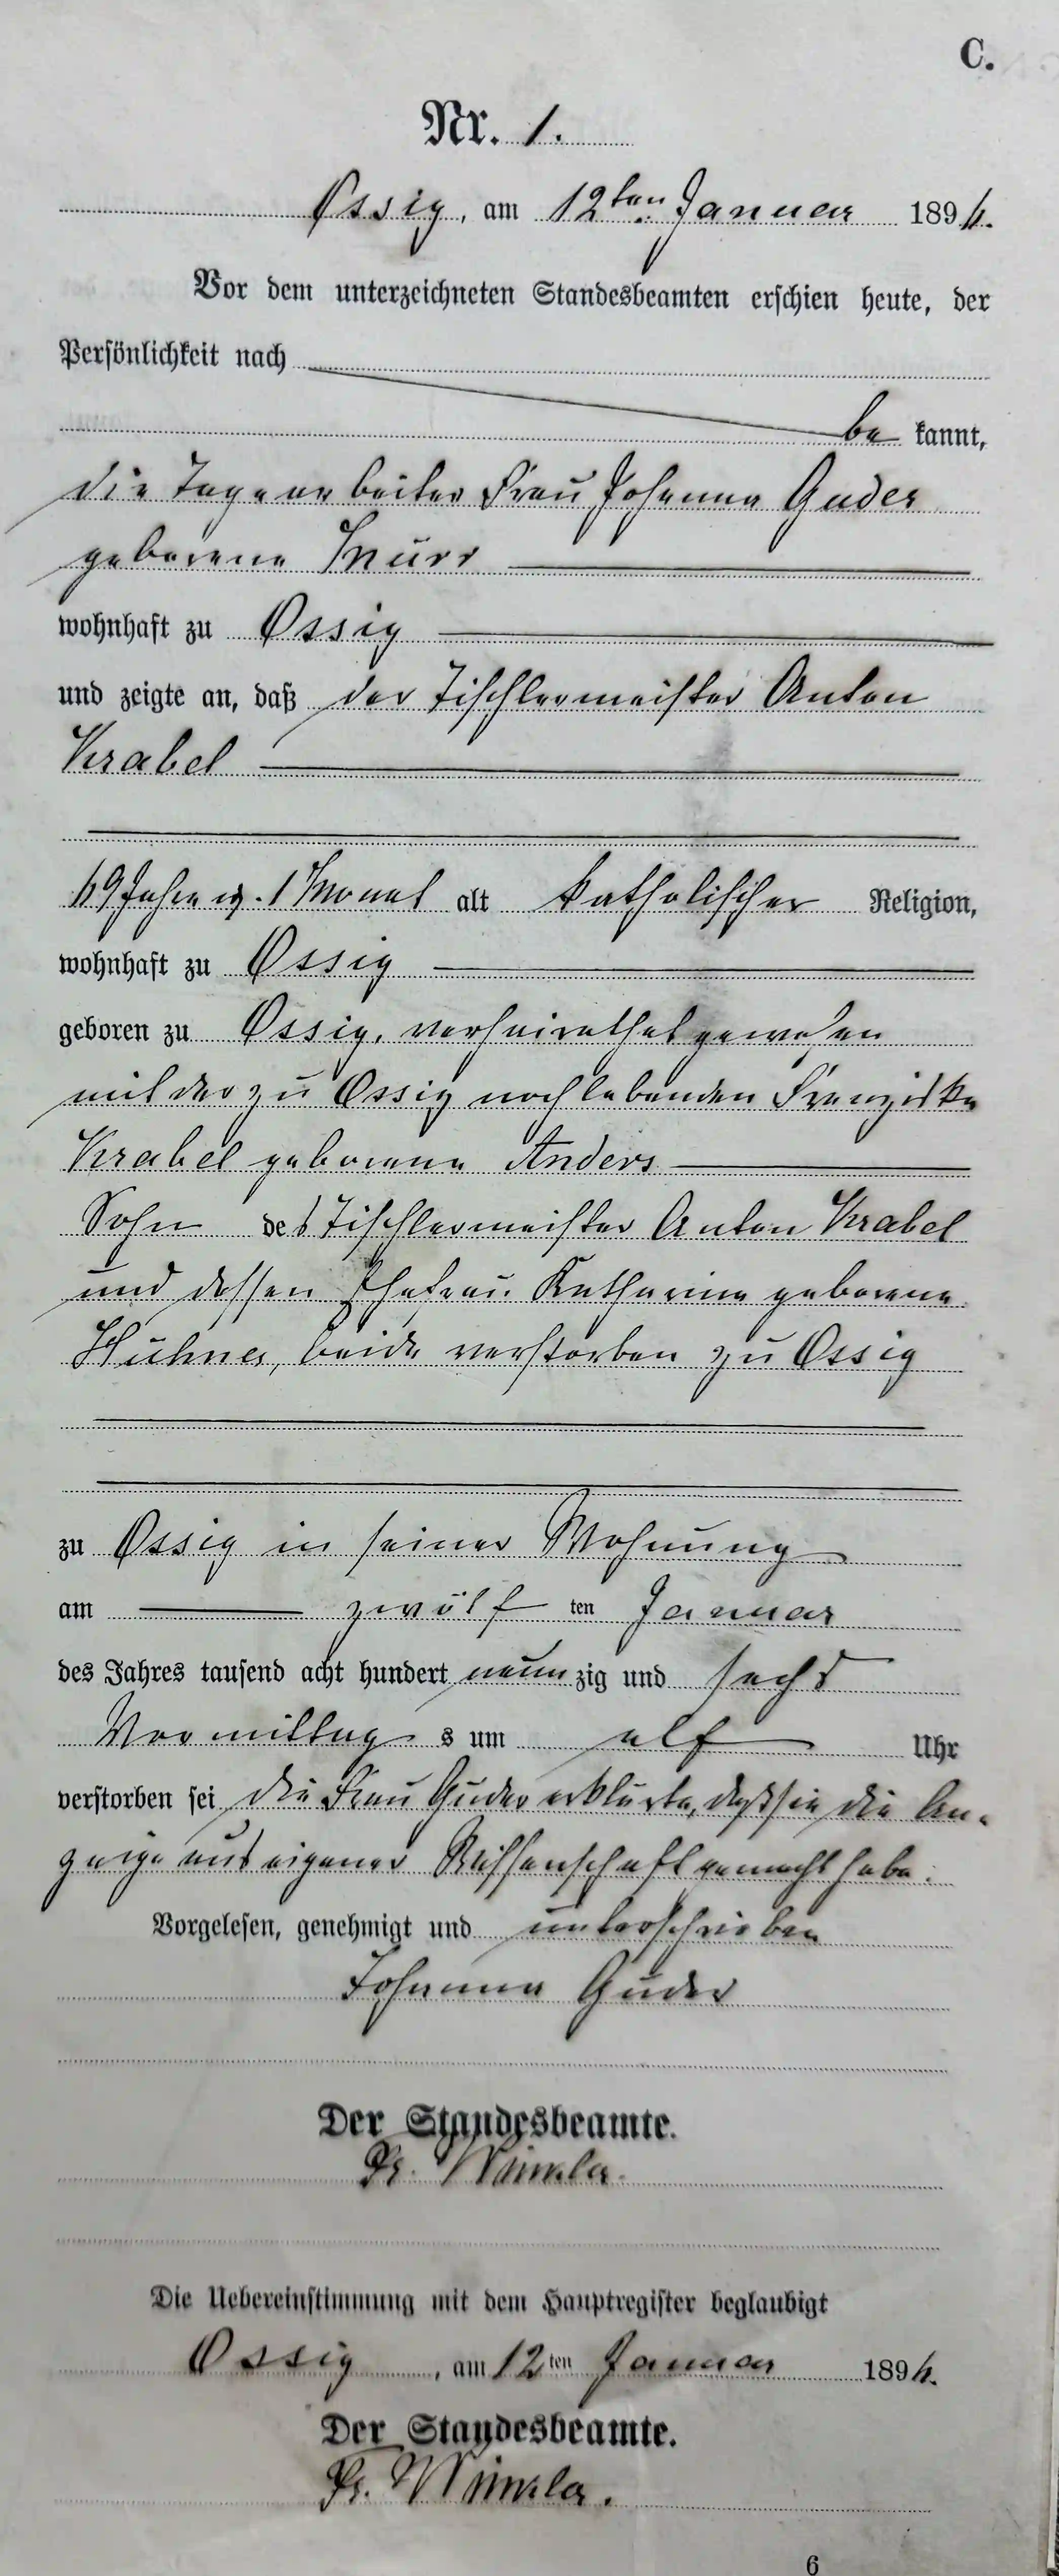 C.
Nr. 1.
Ossig, am 12ten Januar 1896.
Vor dem unterzeichneten Standesbeamten erschien heute, der
Persönlichkeit nach
be kannt,
die Tagearbeiter Frau Johanna Guder
geborene
wohnhaft zu Ossig
und zeigte an, daß der Tischlermeister Anton
Krabel
69 Jahre u. 1 Monat alt katholischer Religion,
wohnhaft zu Ossig
geboren zu Ossig, verheirathet gewesen
mit der zu Ossig noch lebenden Franziska
Krabel geborene Anders
Sohn des Tischlermeister Anton Krabel
und dessen Ehefrau Katharina geborene
Hühner, beide verstorben zu Ossig
zu Ossig in seiner Wohnung
am zwölf ten Januar
des Jahres tausend acht hundert neun zig und sechs
Vormittag s um elf Uhr
verstorben sei die Frau Guder erklärte, daß sie die An-
zeige aus eigener Wissenschaft gemacht habe.
Vorgelesen, genehmigt und unterschrieben
Johanna Guder
Der Standesbeamte.
Die Uebereinstimmung mit dem Hauptregister beglaubigt
Ossig, am 12ten Januar 1896.
Der Standesbeamte.
6